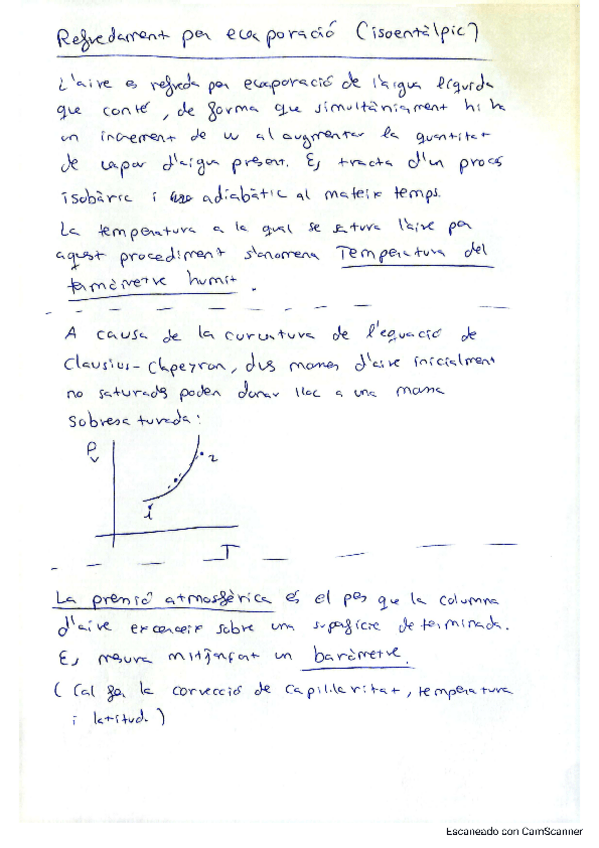 Refredament per evaporació (isoentàlpic)
L'aire es refreda per evaporació de l'aigua líquida
que conté, de forma que simultàniament hi ha
un increment de w al augmentar la quantitat
de vapor d'aigua present. Es tracta d'un procés
isobàric i adiabàtic al mateix temps.
La temperatura a la qual se satura l'aire per
aquest procediment s'anomena Temperatura del
termòmetre humit.
A causa de la curvatura de l'equació de
Clausius-Clapeyron, dues masses d'aire inicialment
no saturades poden donar lloc a una massa
sobresaturada:
Pv
2
1
T
La pressió atmosfèrica és el pes que la columna
d'aire exerceix sobre una superfície determinada.
Es mesura mitjançant un baròmetre.
(Cal fer la correcció de capil·laritat, temperatura
i latitud.)
Escaneado con CamScanner